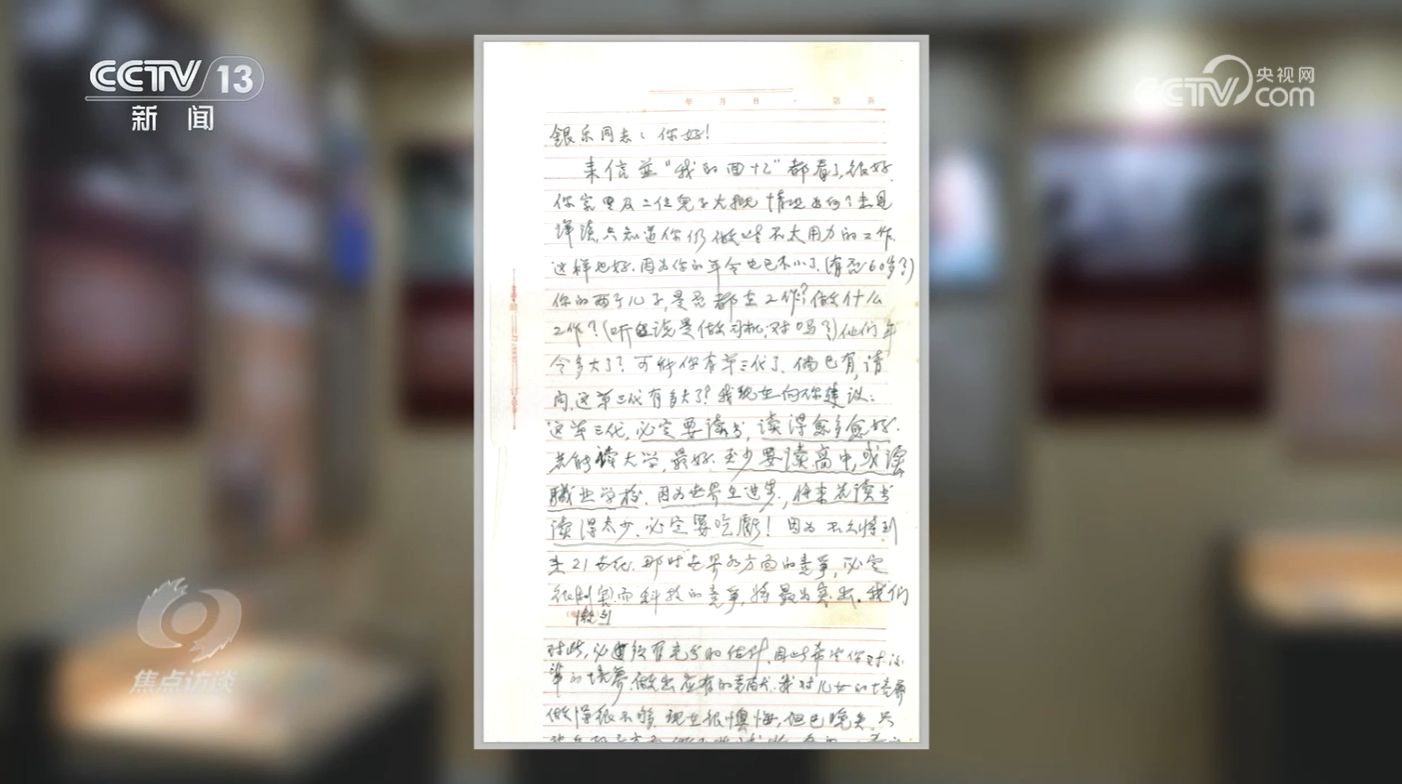 CCTV 13
新闻
CCTV 央视网
com
年 月 日 第 页
銀乐同志：你好！
来信並“我的回忆”都看了，很好。
你家里及二位兒子大概情况如何？未見
详谈，只知道你仍做些不太用力的工作，
这样也好。因为你的年令也已不小了（有否60岁了）
你的两个儿子，是否都在工作？做什么
工作？（听说是做司机，对吗？）他们年
令多大了？可能你有第三代了。倘已有，请
问，这第三代有多大了？我现在向你建议：
这第三代，必定要读书，读得愈多愈好。
若能读大学，最好。至少要读高中，或读
職业学校。因为世界在进步，将来若读书
读得太少，必定要吃虧！因为不久将到
来21世纪。那时世界各方面的竞争，必定
很剧烈而科技的竞争，将最为突出。我们
激烈
对此，必须有充分的估计，因此希望你对后
辈的培养，做出应有的贡献。我对儿女的培养
做得很不够，现在很懊悔，但已晚矣。只
焦点访谈